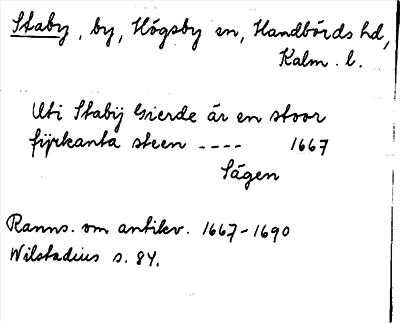 Staby, by, Högsby sn, Handbörds hd,
Kalm. l.
Uti Stabÿ Gierde är en stoor
fÿrkanta steen ---- 1667
Sägen
Ranns. om antikv. 1667-1690
Wilstadius s. 84.